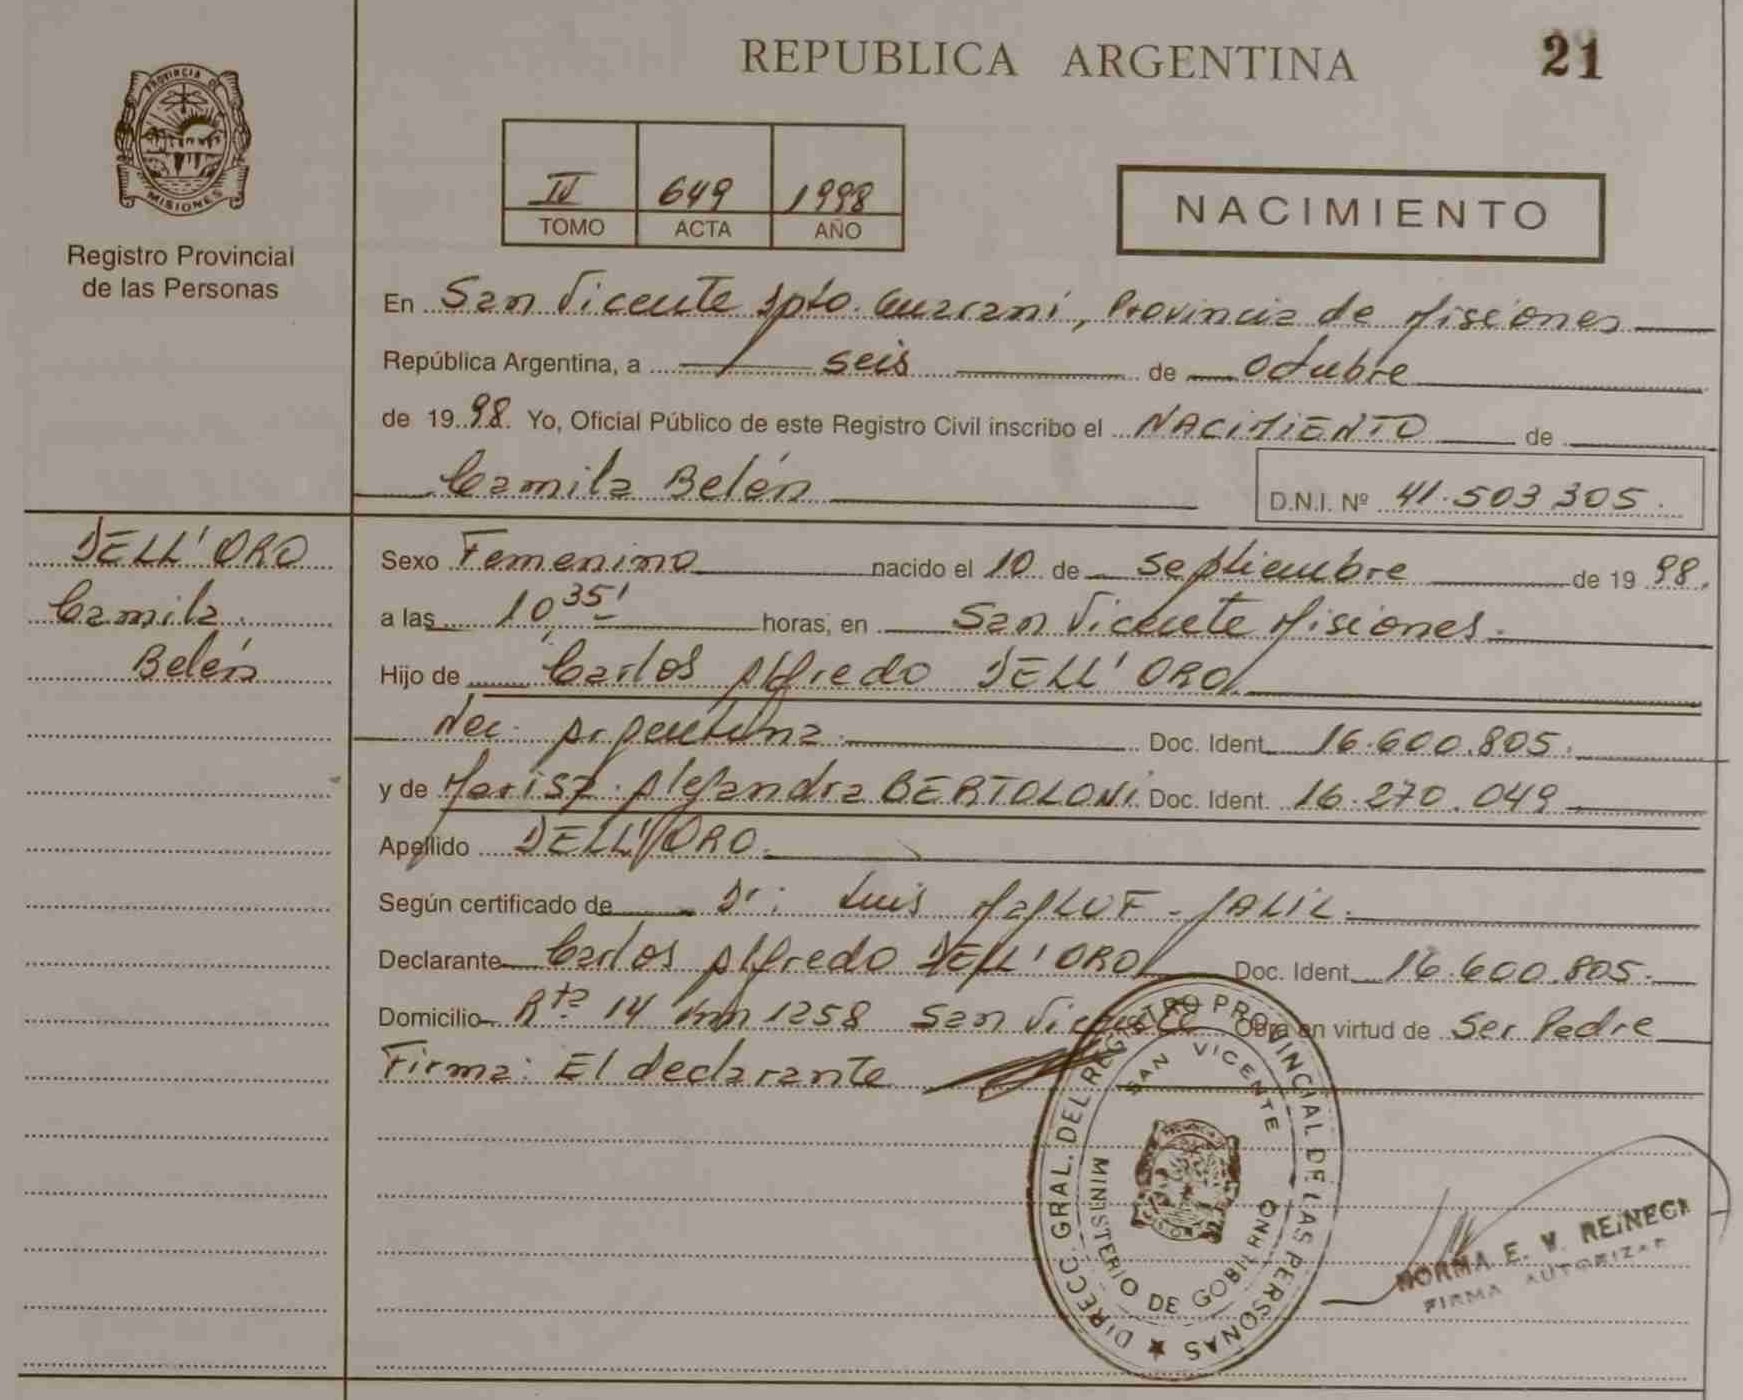 REPUBLICA ARGENTINA 21
PROVINCIA DE
MISIONES
Registro Provincial
de las Personas
IV 649 1998
TOMO ACTA AÑO
NACIMIENTO
En San Vicente Dpto. Guaraní, Provincia de Misiones
República Argentina, a seis de octubre
de 1998. Yo, Oficial Público de este Registro Civil inscribo el NACIMIENTO de
Camila Belén D.N.I. Nº 41.503 305.
DELL'ORO
Camila
Belén
Sexo Femenino nacido el 10 de septiembre de 19 98.
a las 10,35' horas, en San Vicente Misiones.
Hijo de Carlos Alfredo DELL'ORO
Nac. Argentina. Doc. Ident. 16.600.805.
y de Marisa Alejandra BERTOLONI Doc. Ident. 16.270.049
Apellido DELL'ORO.
Según certificado de Dr: Luis MaLUF - JALIL.
Declarante Carlos Alfredo DELL'ORO Doc. Ident. 16.600.805.
Domicilio Rta 14 Km 1258 San Vicente Obra en virtud de Ser Padre
Firma: El declarante
DIRECC. GRAL. DEL REGISTRO PROVINCIAL DE LAS PERSONAS
SAN VICENTE
MINISTERIO DE GOBIERNO
NORMA E. V. REINECK
FIRMA AUTORIZAD